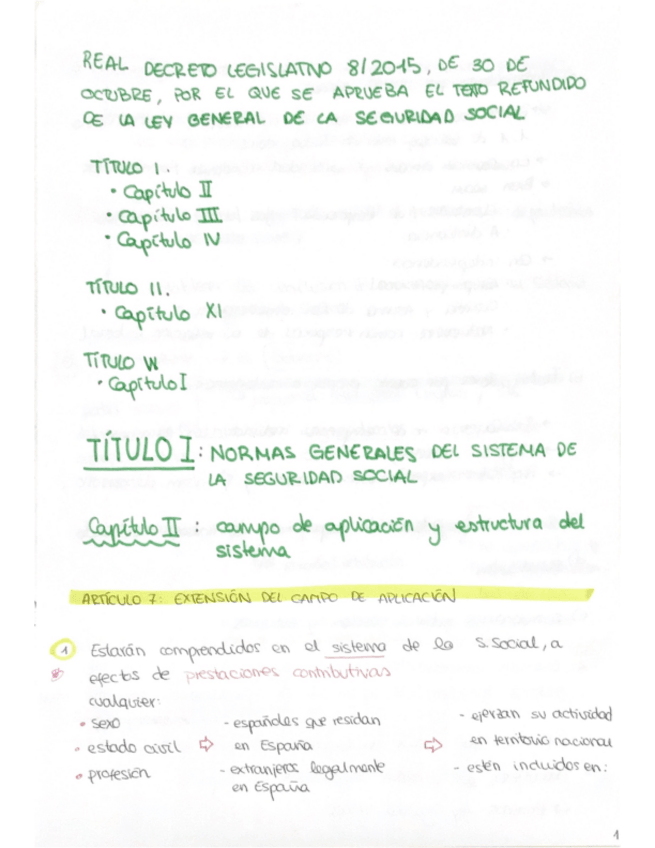 REAL DECRETO LEGISLATIVO 8/2015, DE 30 DE
OCTUBRE, POR EL QUE SE APRUEBA EL TEXTO REFUNDIDO
DE LA LEY GENERAL DE LA SEGURIDAD SOCIAL
TÍTULO I.
• Capítulo II
• Capítulo III
• Capítulo IV
TÍTULO II.
• Capítulo XI
TÍTULO IV
• Capítulo I
TÍTULO I: NORMAS GENERALES DEL SISTEMA DE
LA SEGURIDAD SOCIAL
Capítulo II: campo de aplicación y estructura del
sistema
ARTÍCULO 7: EXTENSIÓN DEL CAMPO DE APLICACIÓN
1 Estarán comprendidos en el sistema de la S. Social, a
efectos de prestaciones contributivas
cualquier:
• sexo
• estado civil
• profesión
⇨
- españoles que residan
en España
- extranjeros legalmente
en España
⇨
- ejerzan su actividad
en territorio nacional
- estén incluidos en:
1